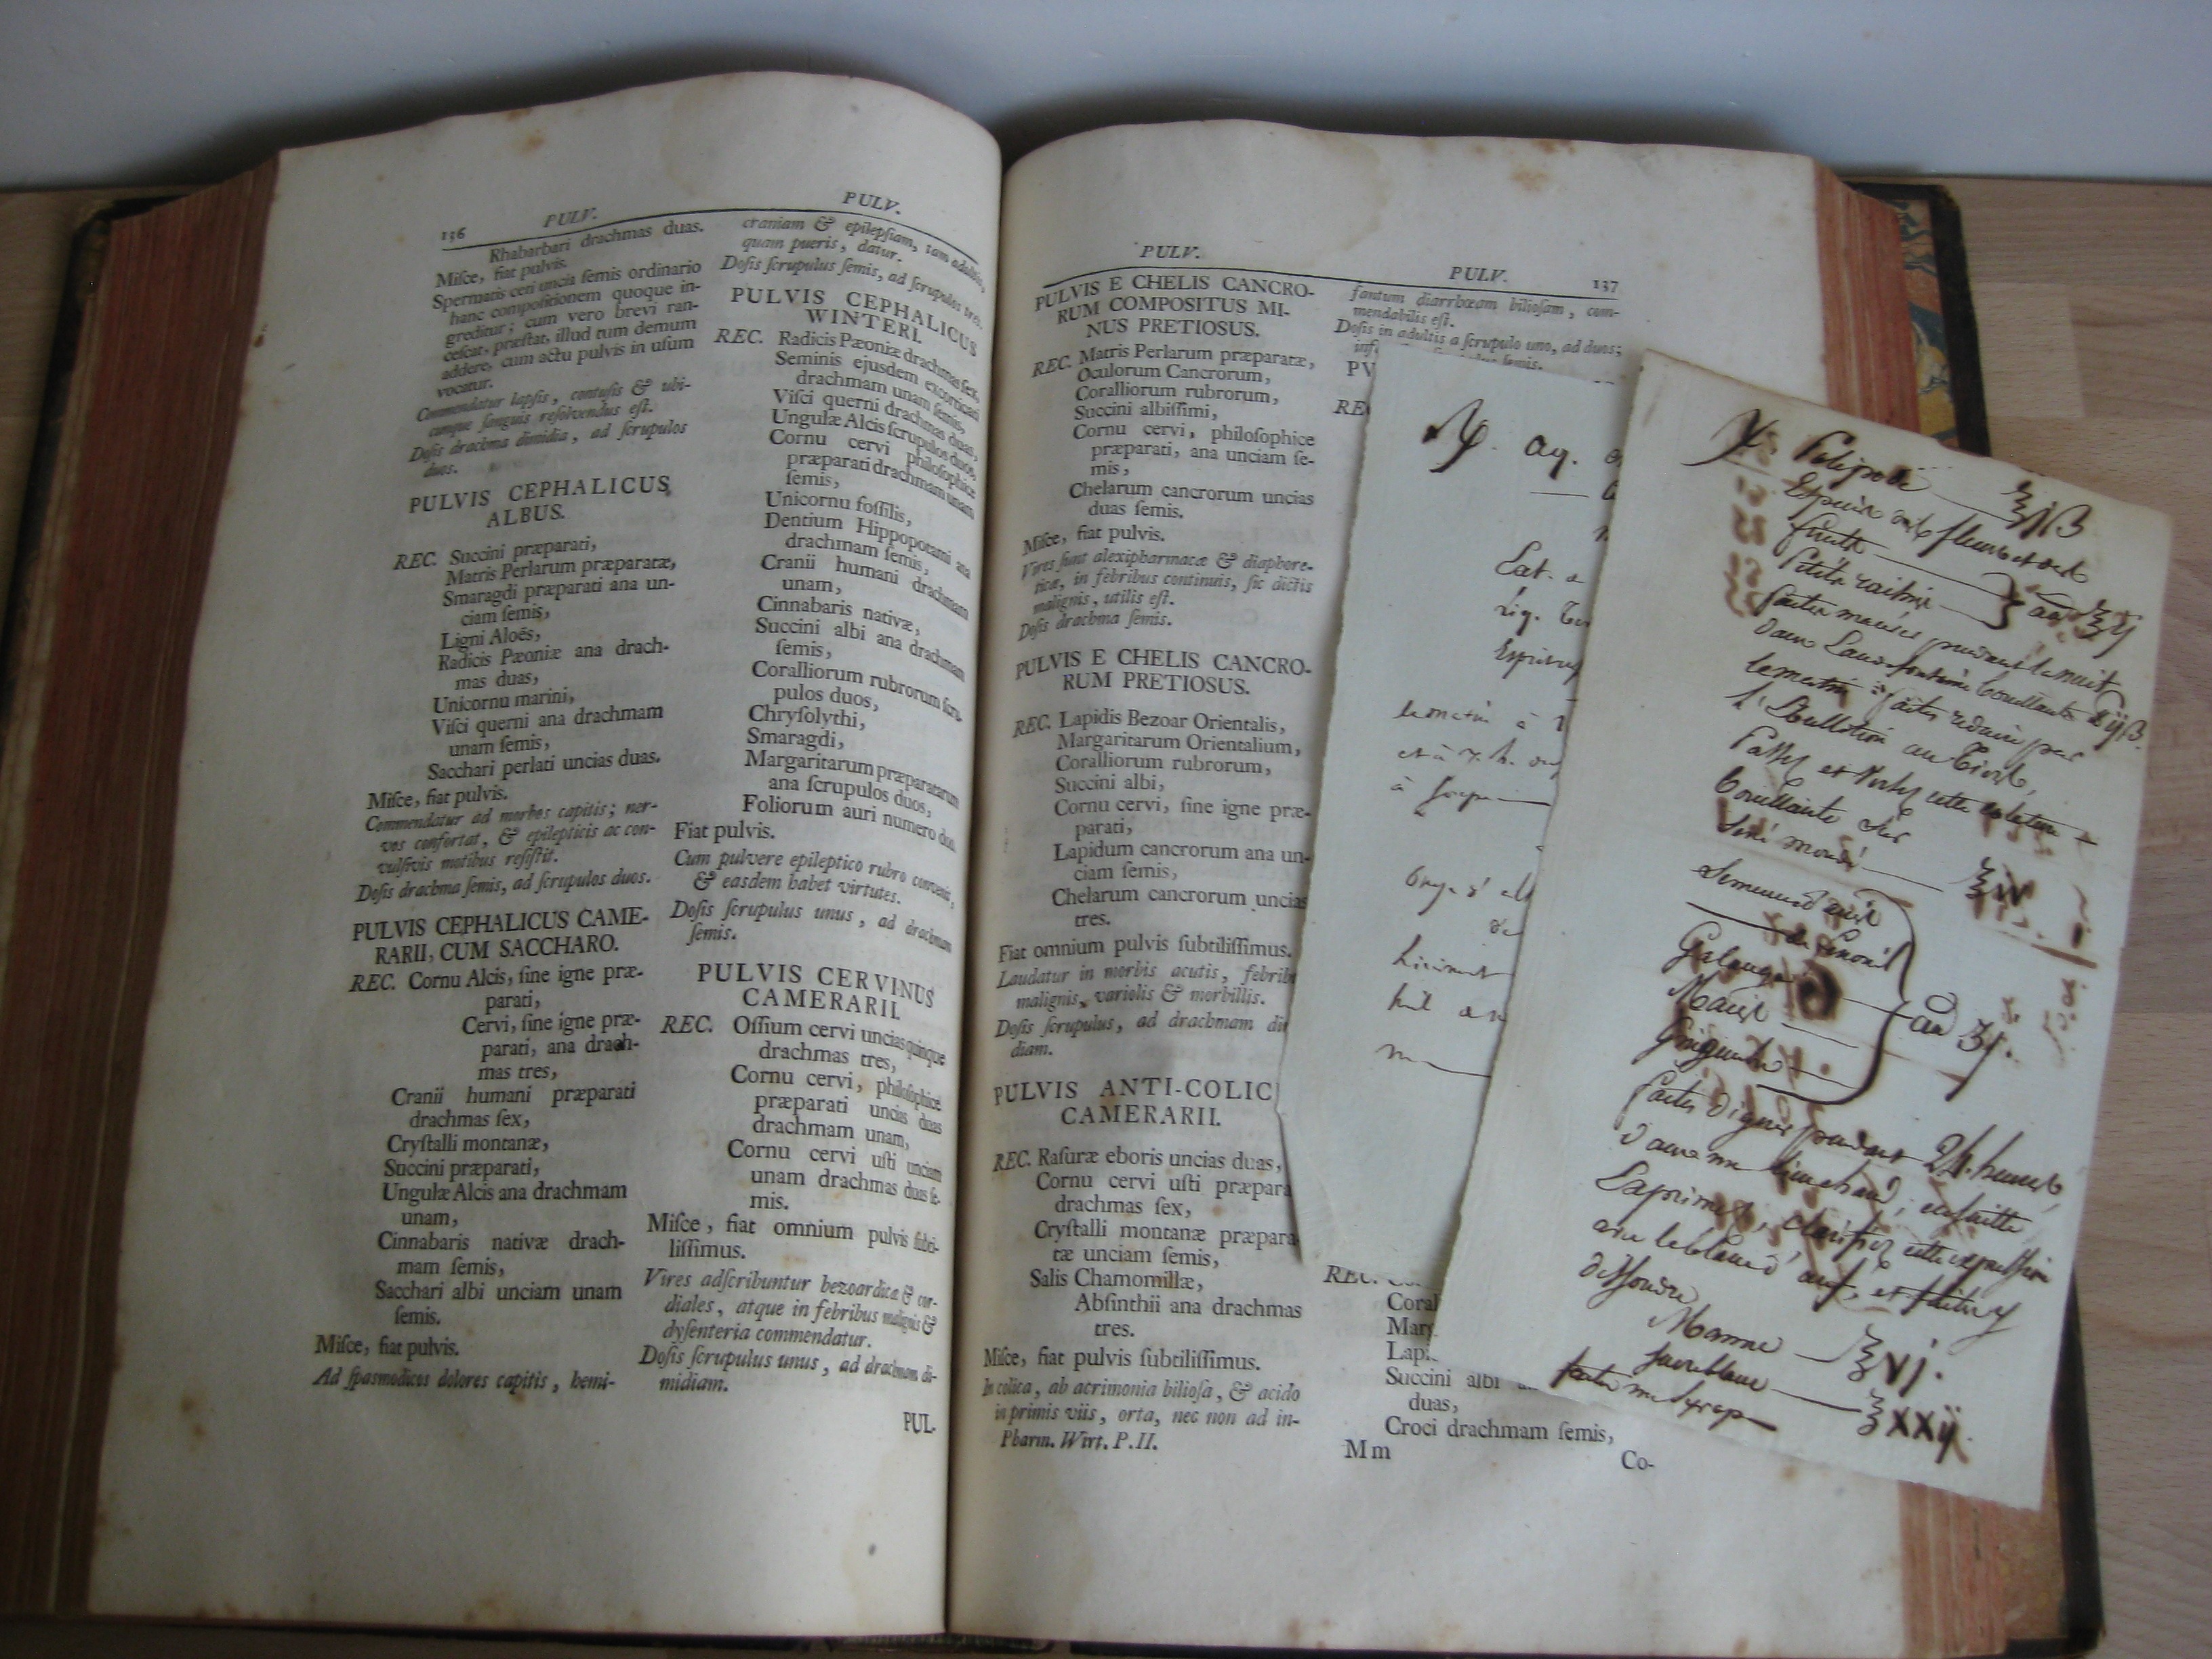 136 PULV. PULV.
Rhabarbari drachmas duas.
Miſce, fiat pulvis.
Spermatis ceti uncia ſemis ordinario
hanc compoſitionem quoque in-
greditur; cum vero brevi ran-
ceſcat, præſtat, illud tum demum
addere, cum actu pulvis in uſum
vocatur.
Commendatur lapſis, contuſis & ubi-
cunque ſanguis reſolvendus eſt.
Doſis drachma dimidia, ad ſcrupulos
duos.
PULVIS CEPHALICUS
ALBUS.
REC. Succini præparati,
Matris Perlarum præparatæ,
Smaragdi præparati ana un-
ciam ſemis,
Ligni Aloës,
Radicis Pæoniæ ana drach-
mas duas,
Unicornu marini,
Viſci querni ana drachmam
unam ſemis,
Sacchari perlati uncias duas.
Miſce, fiat pulvis.
Commendatur ad morbos capitis; ner-
vos confortat, & epilepticis ac con-
vulſivis motibus reſiſtit.
Doſis drachma ſemis, ad ſcrupulos duos.
PULVIS CEPHALICUS CAME-
RARII, CUM SACCHARO.
REC. Cornu Alcis, ſine igne præ-
parati,
Cervi, ſine igne præ-
parati, ana drach-
mas tres,
Cranii humani præparati
drachmas ſex,
Cryſtalli montanæ,
Succini præparati,
Ungulæ Alcis ana drachmam
unam,
Cinnabaris nativæ drach-
mam ſemis,
Sacchari albi unciam unam
ſemis.
Miſce, fiat pulvis.
Ad ſpasmodicos dolores capitis, hemi-
craniam & epilepſiam, tam adultis,
quam pueris, datur.
Doſis ſcrupulus ſemis, ad ſcrupulos tres.
PULVIS CEPHALICUS
WINTERI.
REC. Radicis Pæoniæ drachmas ſex,
Seminis ejusdem excorticati
drachmam unam ſemis,
Viſci querni drachmas duas,
Ungulæ Alcis ſcrupulos duos,
Cornu cervi philoſophice
præparati drachmam unam
ſemis,
Unicornu foſſilis,
Dentium Hippopotami ana
drachmam ſemis,
Cranii humani drachmam
unam,
Cinnabaris nativæ,
Succini albi ana drachmam
ſemis,
Coralliorum rubrorum ſcru-
pulos duos,
Chryſolythi,
Smaragdi,
Margaritarum præparatarum
ana ſcrupulos duos,
Foliorum auri numero duo.
Fiat pulvis.
Cum pulvere epileptico rubro convenit,
& easdem habet virtutes.
Doſis ſcrupulus unus, ad drachmam
ſemis.
PULVIS CERVINUS
CAMERARII.
REC. Oſſium cervi uncias quinque
drachmas tres,
Cornu cervi, philoſophice
præparati uncias duas
drachmam unam,
Cornu cervi uſti unciam
unam drachmas duas ſe-
mis.
Miſce, fiat omnium pulvis ſubti-
liſſimus.
Vires adſcribuntur bezoardicæ & cor-
diales, atque in febribus malignis &
dyſenteria commendatur.
Doſis ſcrupulus unus, ad drachmam di-
midiam.
PUL-
PULV. PULV. 137
PULVIS E CHELIS CANCRO-
RUM COMPOSITUS MI-
NUS PRETIOSUS.
REC. Matris Perlarum præparatæ,
Oculorum Cancrorum,
Coralliorum rubrorum,
Succini albiſſimi,
Cornu cervi, philoſophice
præparati, ana unciam ſe-
mis,
Chelarum cancrorum uncias
duas ſemis.
Miſce, fiat pulvis.
Vires ſunt alexipharmacæ & diaphore-
ticæ, in febribus continuis, ſic dictis
malignis, utilis eſt.
Doſis drachma ſemis.
PULVIS E CHELIS CANCRO-
RUM PRETIOSUS.
REC. Lapidis Bezoar Orientalis,
Margaritarum Orientalium,
Coralliorum rubrorum,
Succini albi,
Cornu cervi, ſine igne præ-
parati,
Lapidum cancrorum ana un-
ciam ſemis,
Chelarum cancrorum uncias
tres.
Fiat omnium pulvis ſubtiliſſimus.
Laudatur in morbis acutis, febrib
malignis, variolis & morbillis.
Doſis ſcrupulus, ad drachmam di
diam.
PULVIS ANTI-COLIC
CAMERARII.
REC. Raſuræ eboris uncias duas,
Cornu cervi uſti præpara
drachmas ſex,
Cryſtalli montanæ præpara
tæ unciam ſemis,
Salis Chamomillæ,
Abſinthii ana drachmas
tres.
Miſce, fiat pulvis ſubtiliſſimus.
In colica, ab acrimonia bilioſa, & acido
in primis viis, orta, nec non ad in-
Pharm. Wirt. P. II.
fantum diarrhœam bilioſam, com-
mendabilis eſt.
Doſis in adultis a ſcrupulo uno, ad duos;
ſemis.
PV
RE
REC.
Coral
Marg
Lapi
Succini albi
duas,
Croci drachmam ſemis,
Mm Co-
aq.
Liq.
le matin à
et à 7. h.
à
Polipode ℥jß
fleurs et
fruits
faites
pendant la nuit
dans
le matin faites reduire par
l'Ebullition au tiers,
Passez et Versez cette colature
bouillante sur
Séné mondé ℥iv
Semences d'anis
de fenouil
Galanga
Macis
Gingembre
aa ʒj.
faites digerer pendant 24. heures,
dans un lieu chaud, ensuitte
Exprimez, clarifiez cette expression
avec le blanc d'œuf, et faites y
dissoudre
Manne ℥vj.
sucre blanc ℥xxij.
faites un Syrop